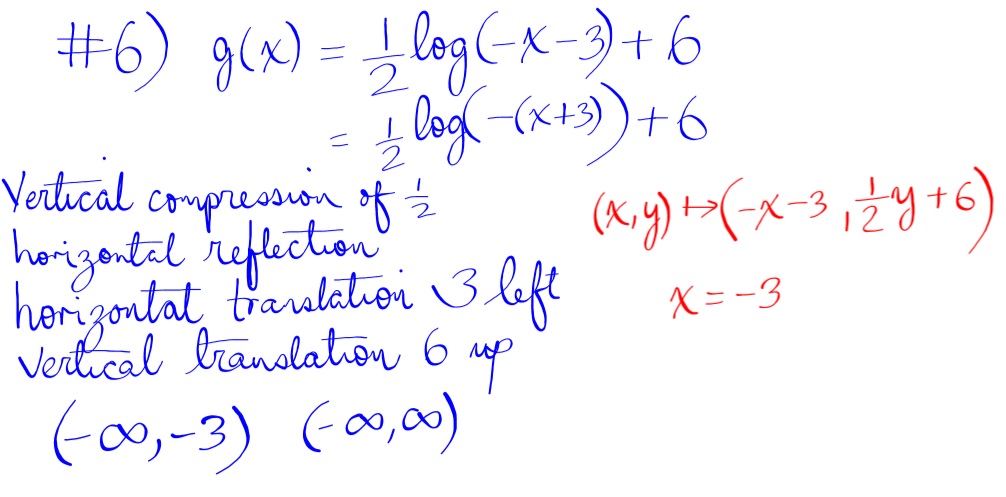 #6) g(x) = 1/2 log(-x-3) + 6
= 1/2 log(-(x+3)) + 6
Vertical compression of 1/2
horizontal reflection
horizontal translation 3 left
vertical translation 6 up
(-∞, -3) (-∞, ∞)
(x, y) ↦ (-x-3, 1/2 y + 6)
x = -3